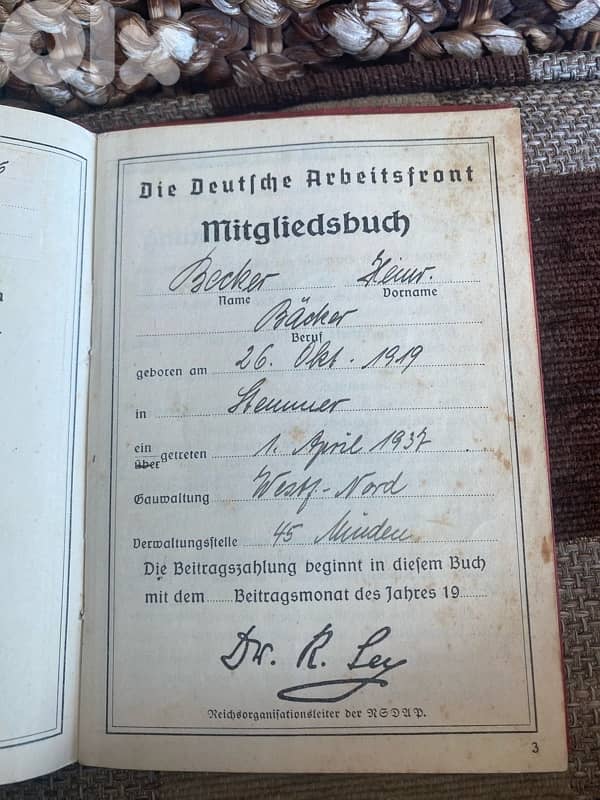 olx
Die Deutsche Arbeitsfront
Mitgliedsbuch
Becker Heinr.
Name Vorname
Bäcker
Beruf
geboren am 26. Okt. 1919
in Stemmer
ein
über getreten 1. April 1937.
Gauwaltung Westf.-Nord
Verwaltungsstelle 45 Minden
Die Beitragszahlung beginnt in diesem Buch
mit dem ........ Beitragsmonat des Jahres 19........
Dr. R. Ley
Reichsorganisationsleiter der NSDAP.
3